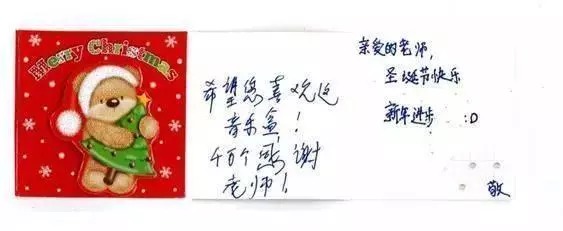 Merry Christmas
希望您喜欢这
音乐盒！
千万个感谢
老师！
亲爱的老师,
圣诞节快乐
新年进步 :D
敬